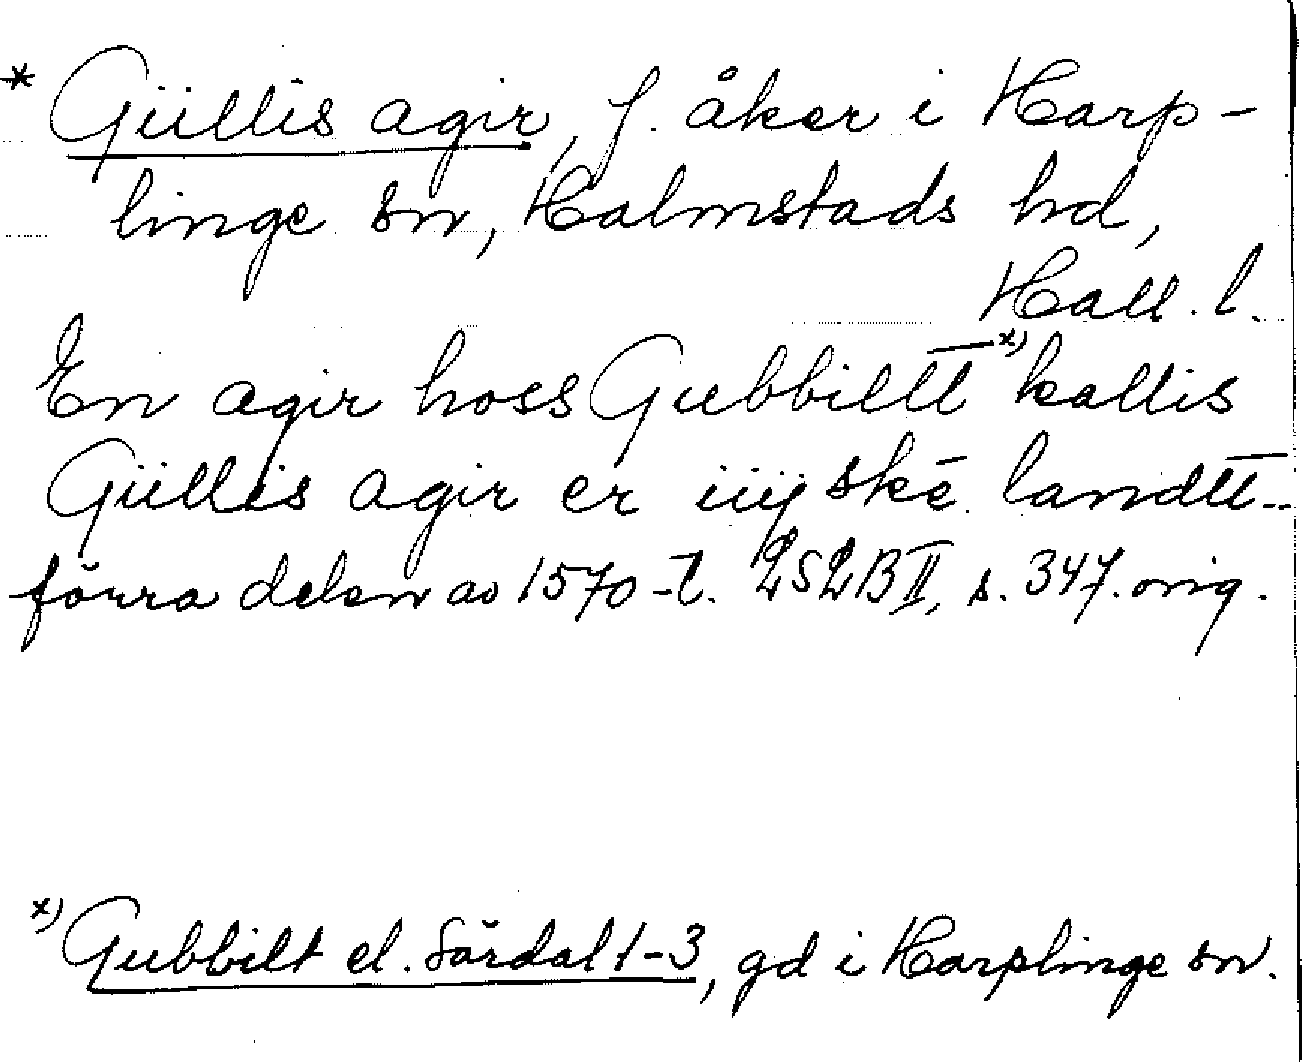 * Güllis agir, f. åker i Harp-
linge sn, Halmstads hd,
Hall. l.
En agir hoss Gubbilltt x) kallis
Güllis agir er iiij ske landtt
förra delen av 1570-t. LSLB II, s. 347. orig.
x) Gubbilt el. Särdal 1-3, gd i Harplinge sn.